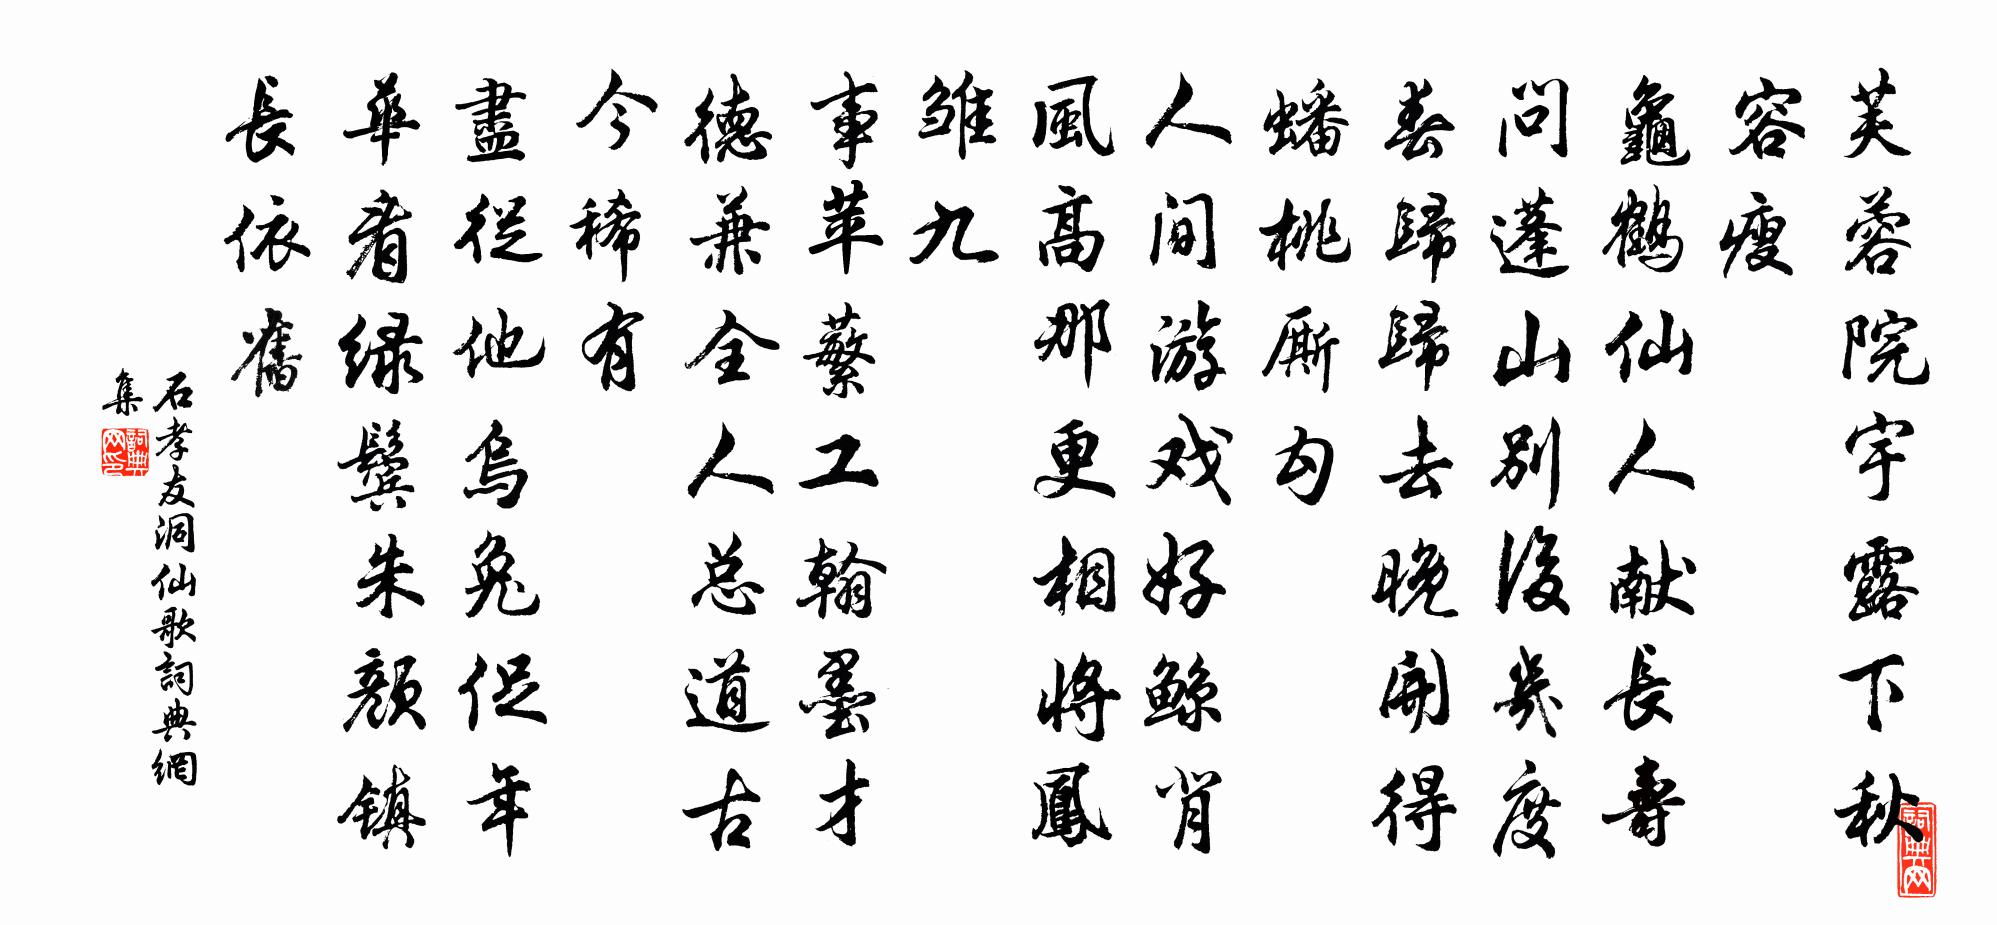 芙蓉院宇露下秋
容瘦
龜鶴仙人献長壽
問蓬山別後幾度
春歸歸去晚開得
蟠桃厮勾
人间游戏好鲸背
風高那更相將鳳
雏九
事苹蘩工翰墨才
德兼全人总道古
今稀有
盡從他烏兔促年
華看绿鬓朱顏镇
長依舊
石孝友洞仙歌詞典網
集
詞典网
詞典网印